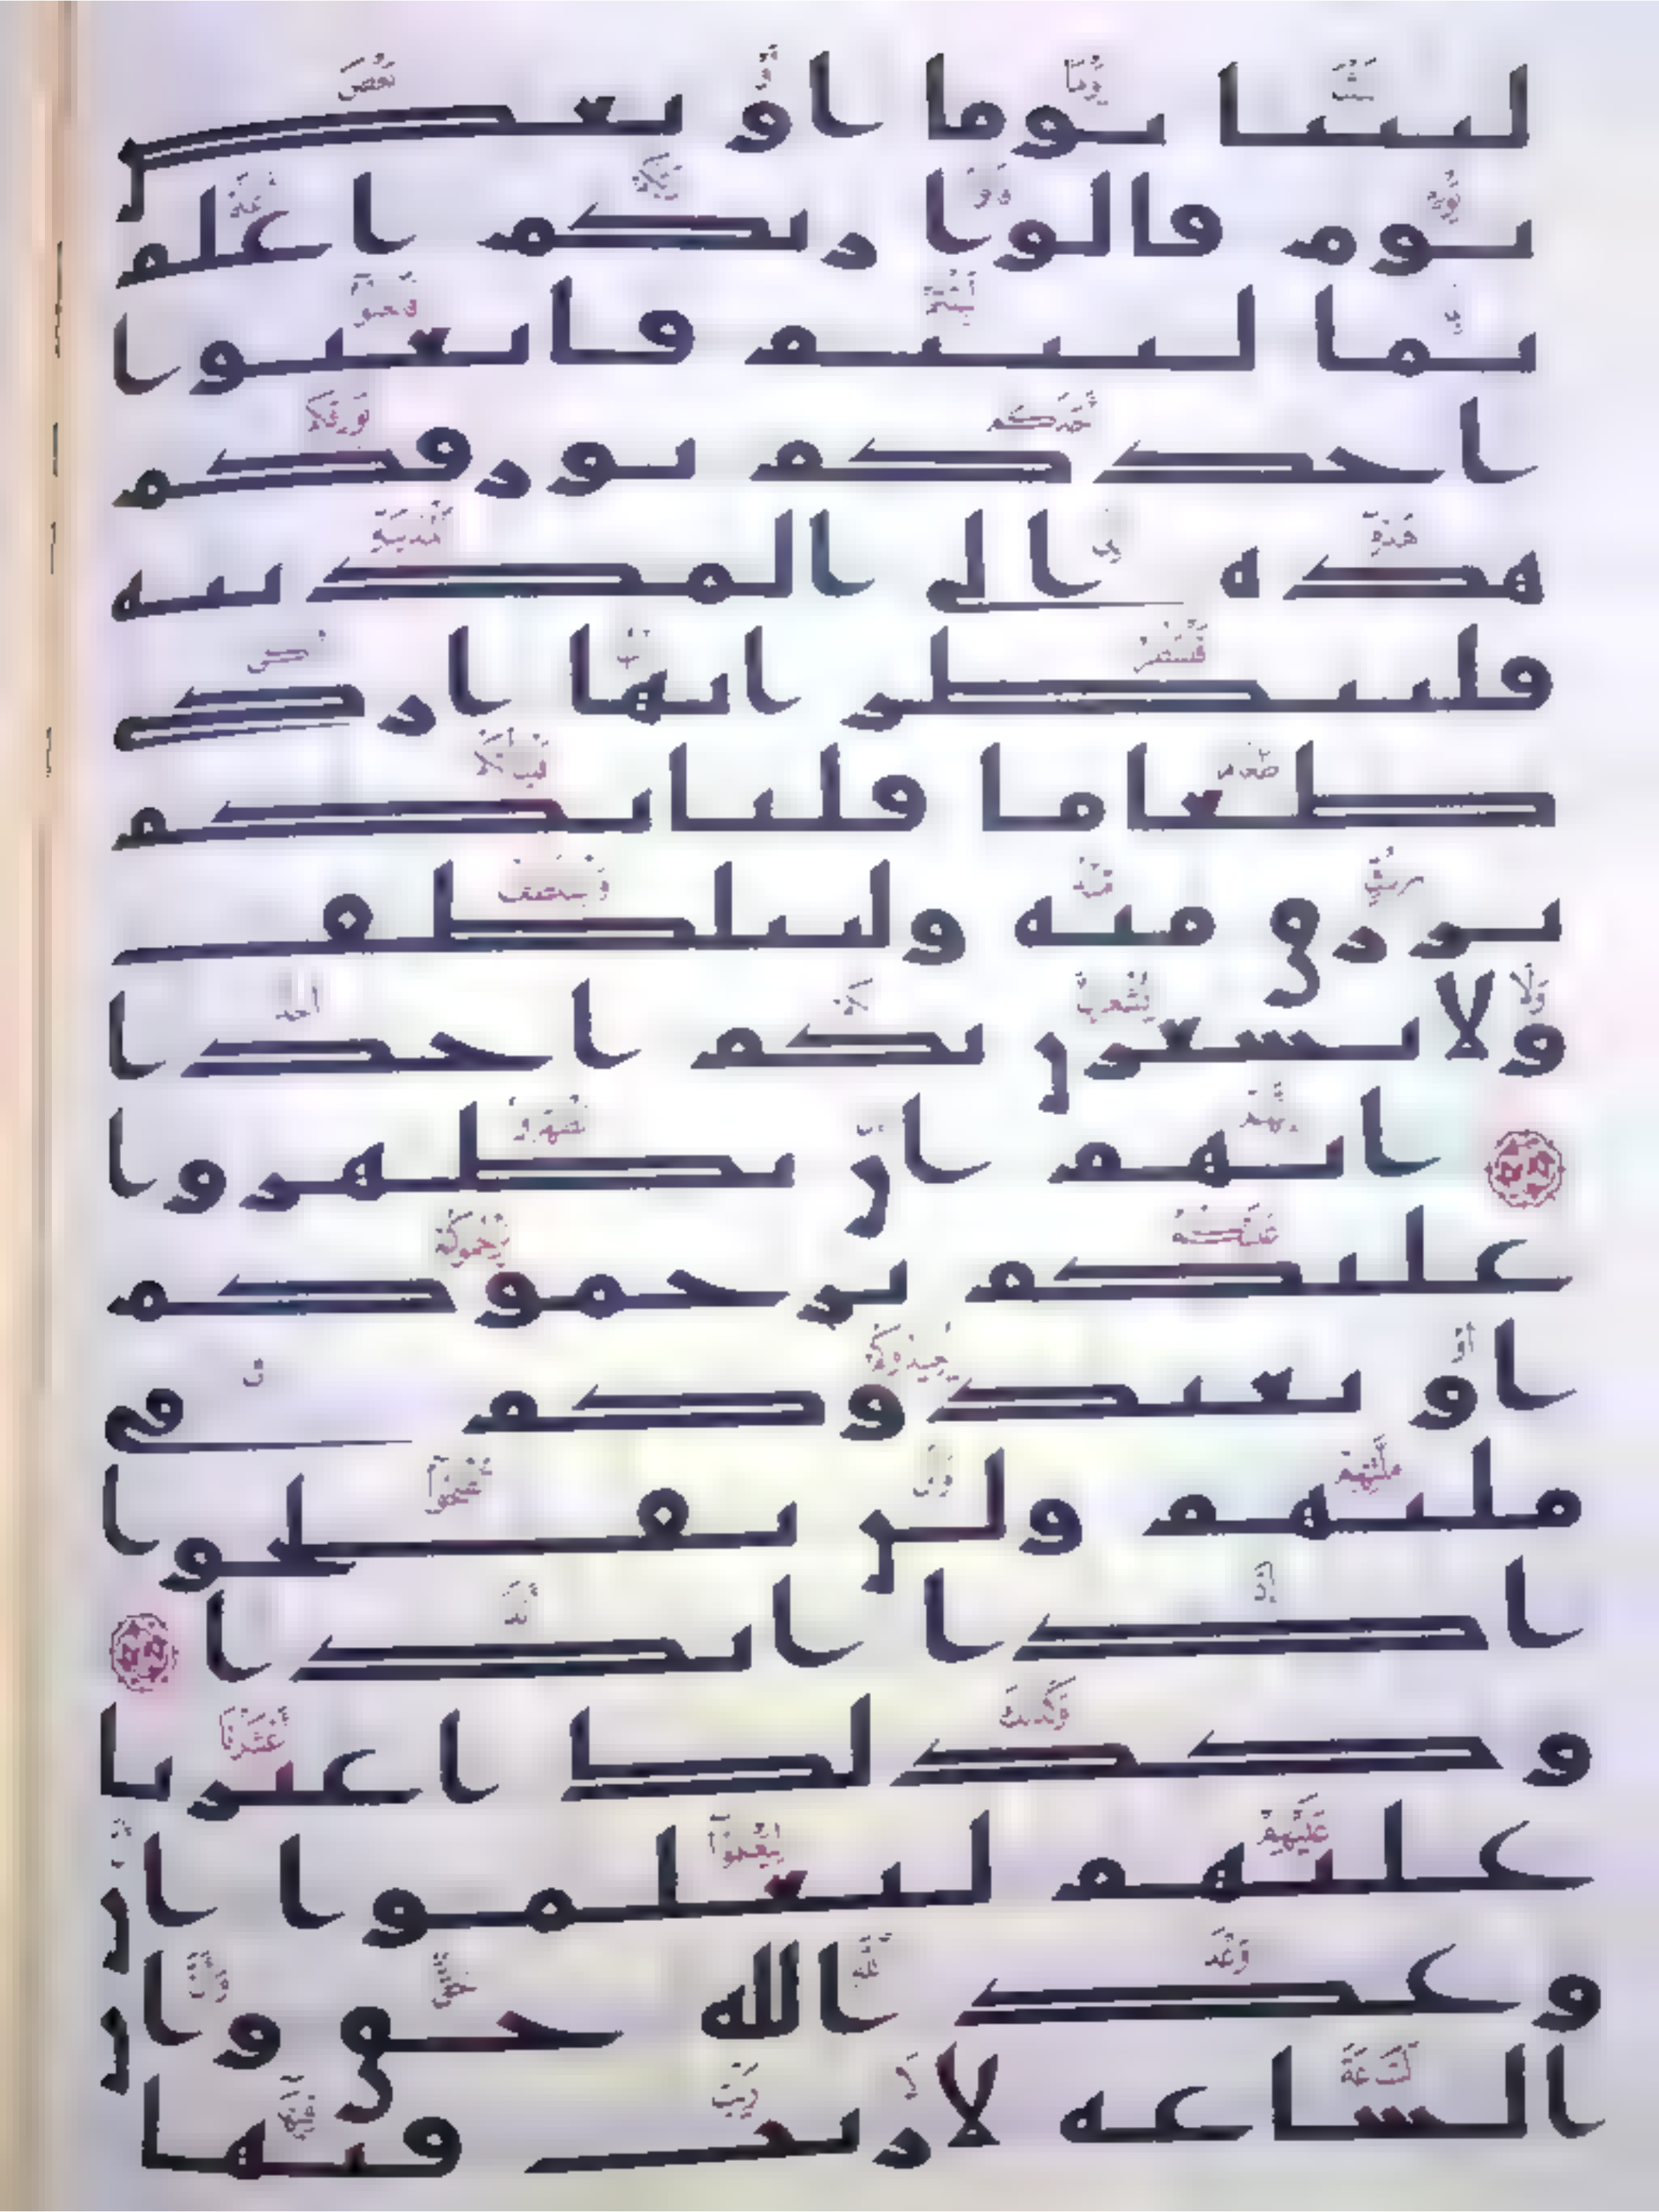 لبثنا يوما او بعض
يوم قالوا ربكم اعلم
بما لبثتم فابعثوا
احدكم بورقكم
هذه الى المدينة
فلينظر ايها ازكى
طعاما فلياتكم
برزق منه وليتلطف
ولا يشعرن بكم احدا
انهم ان يظهروا
عليكم يرجموكم
او يعيدوكم في
ملتهم ولن تفلحوا
اذا ابدا
وكذلك اعثرنا
عليهم ليعلموا ان
وعد الله حق وان
الساعة لا ريب فيها